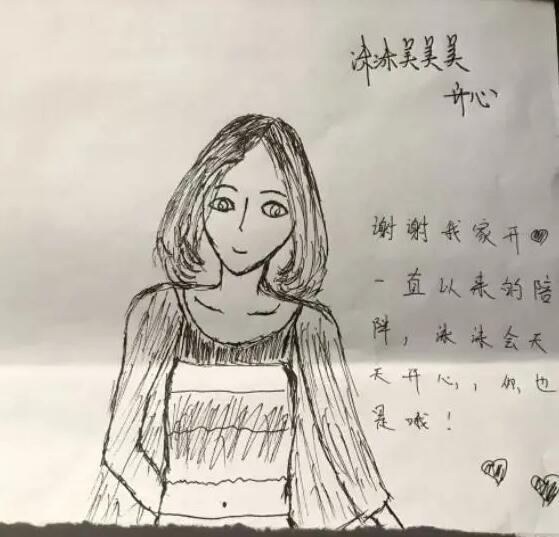 泳泳美美美
开心
谢谢我家开
一直以来的陪
伴，泳泳会天
天开心，你也
是哦！